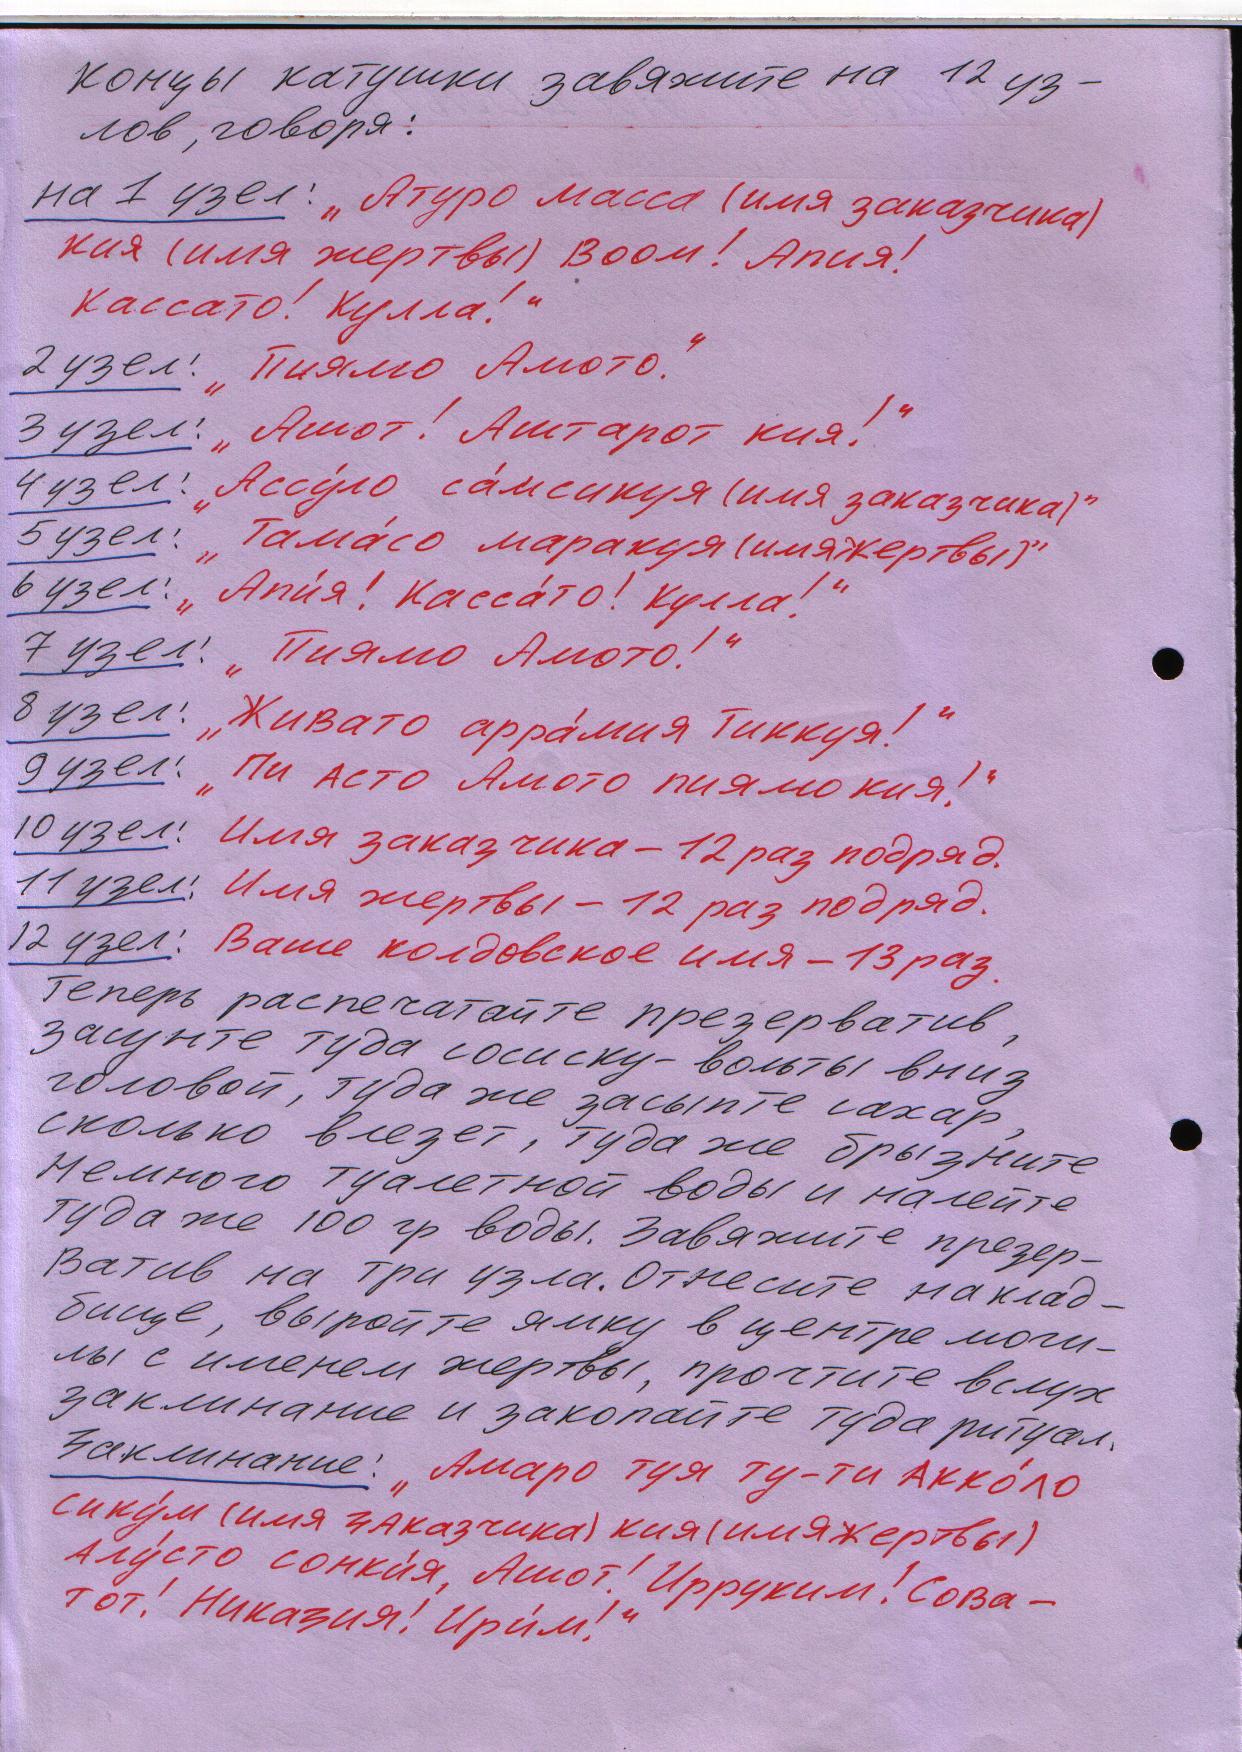 Концы катушки завяжите на 12 уз-
лов, говоря:
на 1 узел: „Атуро масса (имя заказчика)
кия (имя жертвы) Воом! Апия!
Кассато! Кулла!"
2 узел: „Пиямо Амото."
3 узел: „Ашот! Аштарот кия!"
4 узел: „Ассу́ло са́мсикуя (имя заказчика)"
5 узел: „Тама́со маракуя (имя жертвы)"
6 узел: „Апи́я! Касса́то! Кулла!"
7 узел: „Пиямо Амото!"
8 узел: „Живато арра́мия Тиккуя!"
9 узел: „Пи Асто Амото пиямо кия!"
10 узел: Имя заказчика – 12 раз подряд.
11 узел: Имя жертвы – 12 раз подряд.
12 узел: Ваше колдовское имя – 13 раз.
Теперь распечатайте презерватив,
засуньте туда сосиску-вольты вниз
головой, туда же засыпте сахар,
сколько влезет, туда же брызните
немного туалетной воды и налейте
туда же 100 гр воды. Завяжите презер-
ватив на три узла. Отнесите на клад-
бище, выройте ямку в центре моги-
лы с именем жертвы, прочтите вслух
заклинание и закопайте туда ритуал.
Заклинание: „Амаро туя ту-ти Акко́ло
сику́м (имя заказчика) кия (имя жертвы)
Алу́сто сонки́я, Ашот! Ирруким! Сова-
тот! Никазия! Ири́м!"